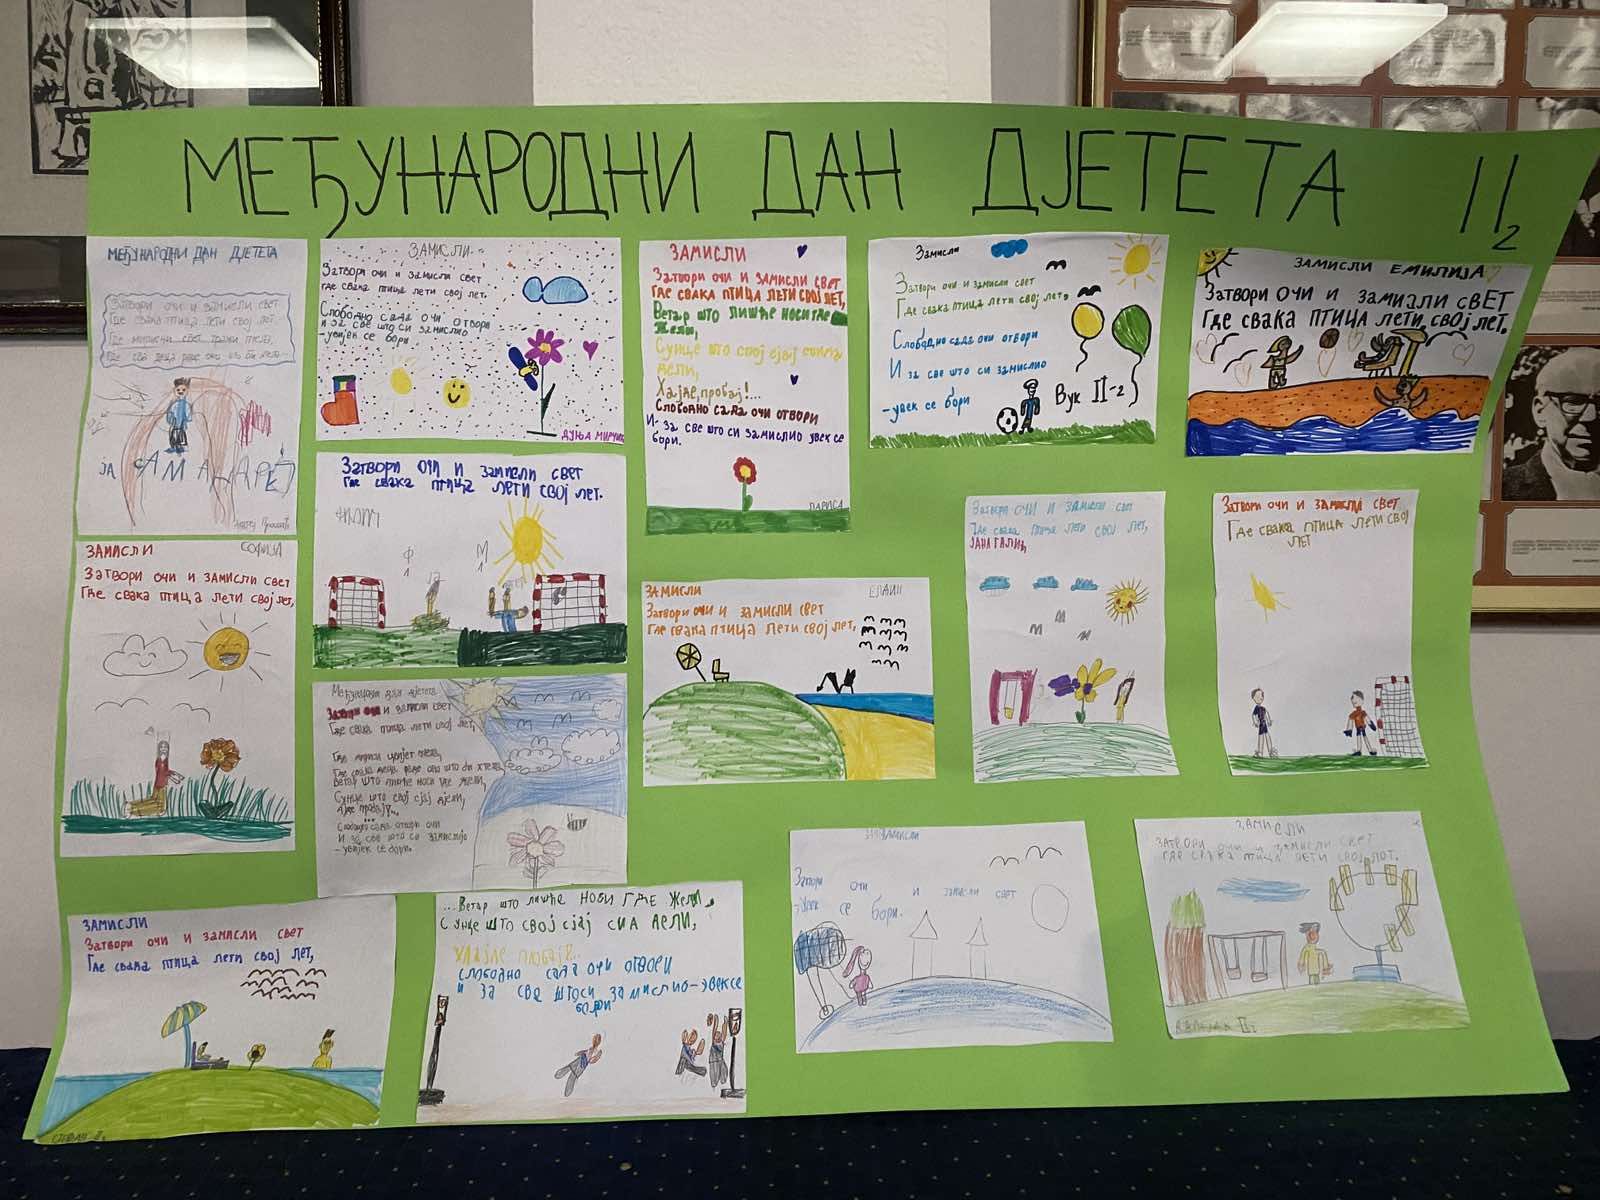 МЕЂУНАРОДНИ ДАН ДЈЕТЕТА II2
МЕЂУНАРОДНИ ДАН ДЈЕТЕТА
ЗАТВОРИ ОЧИ И ЗАМИСЛИ СВЕТ
ГДЕ СВАКА ПТИЦА ЛЕТИ СВОЈ ЛЕТ
ЈА САМ АНДРЕЈ
ЗАМИСЛИ
ЗАТВОРИ ОЧИ И ЗАМИСЛИ СВЕТ
ГДЕ СВАКА ПТИЦА ЛЕТИ СВОЈ ЛЕТ.
СЛОБОДНО САДА ОЧИ ОТВОРИ
И ЗА СВЕ ШТО СИ ЗАМИСЛИО
-УВИЈЕК СЕ БОРИ.
ДУЊА
ЗАМИСЛИ
ЗАТВОРИ ОЧИ И ЗАМИСЛИ СВЕТ
ГДЕ СВАКА ПТИЦА ЛЕТИ СВОЈ ЛЕТ,
ВЕТАР ШТО ЛИШЋЕ НОСИ ГДЕ
ЖЕЛИ,
СУНЦЕ ШТО СВОЈ СЈАЈ
ДЕЛИ,
ХАЈДЕ, ПРОБАЈ!...
СЛОБОДНО САДА ОЧИ ОТВОРИ
И ЗА СВЕ ШТО СИ ЗАМИСЛИО УВЕК СЕ
БОРИ.
ЛАРИСА
Замисли
Затвори очи и замисли свет
Где свака птица лети свој лет,
Слободно сада очи отвори
И за све што си замислио
-увек се бори
Вук II-2
ЗАМИСЛИ ЕМИЛИЈА
ЗАТВОРИ ОЧИ И ЗАМИАЛИ СВЕТ
ГДЕ СВАКА ПТИЦА ЛЕТИ СВОЈ ЛЕТ.
ЗАМИСЛИ СОФИЈА
ЗАТВОРИ ОЧИ И ЗАМИСЛИ СВЕТ
ГДЕ СВАКА ПТИЦА ЛЕТИ СВОЈ ЛЕТ,
ЗАТВОРИ ОЧИ И ЗАМИСЛИ СВЕТ
ГДЕ СВАКА ПТИЦА ЛЕТИ СВОЈ ЛЕТ.
Ф М
МЕЂУНАРОДНИ ДАН ДЈЕТЕТА
ЗАТВОРИ ОЧИ И ЗАМИСЛИ СВЕТ
ГДЕ СВАКА ПТИЦА ЛЕТИ СВОЈ ЛЕТ,
ВЕТАР ШТО ЛИШЋЕ НОСИ ГДЕ ЖЕЛИ,
СУНЦЕ ШТО СВОЈ СЈАЈ ДЈЕЛИ,
СЛОБОДНО САДА ОТВОРИ ОЧИ
И ЗА СВЕ ШТО СИ ЗАМИСЛИО
-УВИЈЕК СЕ БОРИ.
ЗАМИСЛИ
ЗАТВОРИ ОЧИ И ЗАМИСЛИ СВЕТ
ГДЕ СВАКА ПТИЦА ЛЕТИ СВОЈ ЛЕТ,
ЗАТВОРИ ОЧИ И ЗАМИСЛИ СВЕТ
ГДЕ СВАКА ПТИЦА ЛЕТИ СВОЈ ЛЕТ,
ЈАНА ГАЛИЋ
ЗАТВОРИ ОЧИ И ЗАМИСЛИ СВЕТ
ГДЕ СВАКА ПТИЦА ЛЕТИ СВОЈ
ЛЕТ
ЗАМИСЛИ
ЗАТВОРИ ОЧИ И ЗАМИСЛИ СВЕТ
ГДЕ СВАКА ПТИЦА ЛЕТИ СВОЈ ЛЕТ,
СТЕФАН
...ВЕТАР ШТО ЛИШЋЕ НОВИ ГДЕ ЖЕЛИ,
СУНЦЕ ШТО СВОЈ СЈАЈ
СЛОБОДНО САДА ОЧИ ОТВОРИ
И ЗА СВЕ ШТОСИ ЗАМИСЛИО-УВЕКСЕ
БОРИ
очи и замисли свет
се бори.
ЗАМИСЛИ
ЗАТВОРИ ОЧИ И ЗАМИСЛИ СВЕТ
ГДЕ СВАКА ПТИЦА ЛЕТИ СВОЈ ЛЕТ.